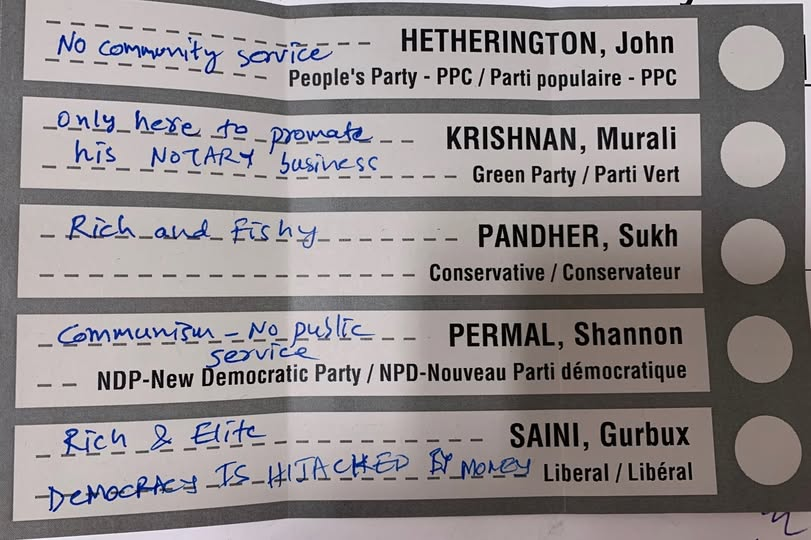 No community service HETHERINGTON, John
People's Party - PPC / Parti populaire - PPC
only here to promate KRISHNAN, Murali
his NOTARY business Green Party / Parti Vert
Rich and Fishy PANDHER, Sukh
Conservative / Conservateur
Communism - No public PERMAL, Shannon
service
NDP-New Democratic Party / NPD-Nouveau Parti démocratique
Rich & Elite SAINI, Gurbux
DEMOCRACY IS HIJACKED BY MONEY Liberal / Libéral